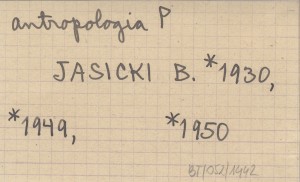 antropologia P
JASICKI B. *1930,
*1949, *1950
BT/052/1942